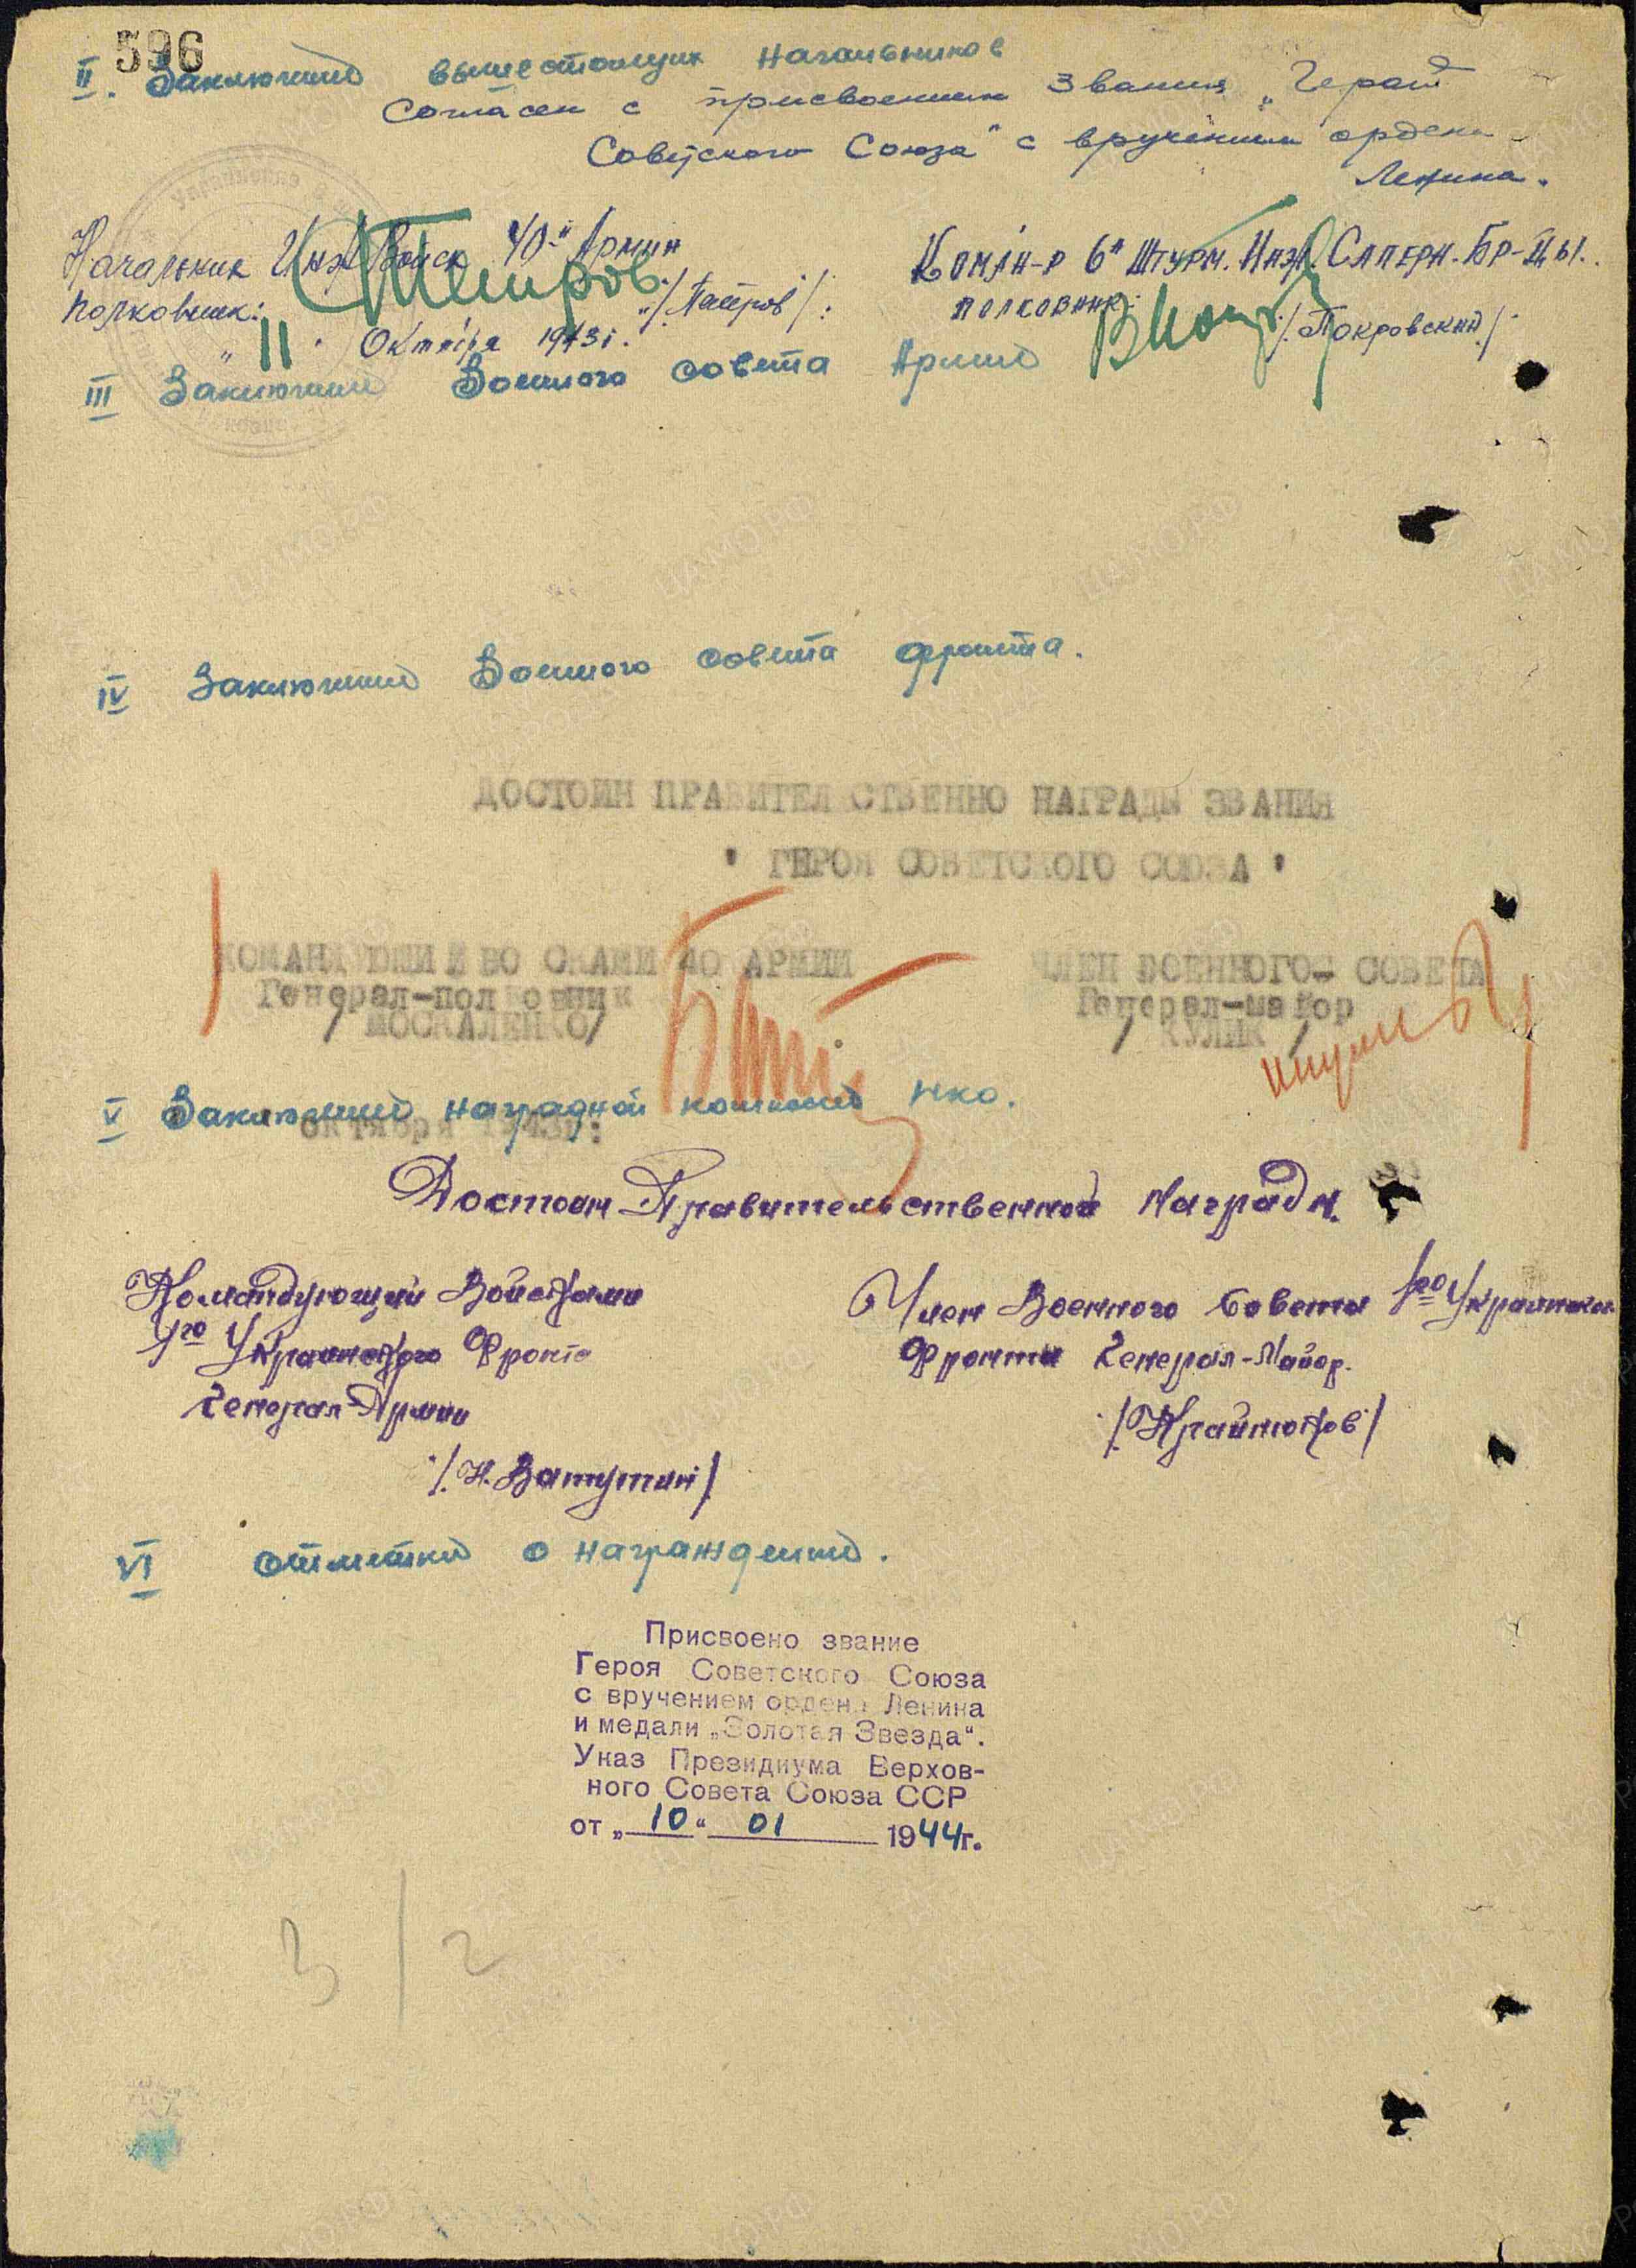 596
II. Заключение вышестоящих начальников
Согласен с присвоением звания „Герой
Советского Союза" с вручением ордена
Ленина.
Начальник Инж. Войск 40-й Армии
полковник: /Таиров/.
„11" Октября 1943г.
Команд-р 6й Штурм. Инж. Саперн. Бр-ды.
полковник: /Покровский/
III Заключение Военного совета Армии
IV Заключение Военного совета фронта.
ДОСТОИН ПРАВИТЕЛ СТВЕННО НАГРАДЫ ЗВАНИЯ
" ГЕРОЯ СОВЕТСКОГО СОЮЗА "
КОМАНДУЮЩИЙ ВОЙСКАМИ 40 АРМИИ
Генерал-полковник
/ МОСКАЛЕНКО/
ЧЛЕН ВОЕННОГО СОВЕТА
Генерал-майор
/ КУЛИК /
V Заключение наградной комиссии НКО.
октября 1943г:
Достоин Правительственной Награды.
Командующий Войсками
1го Украинского Фронта
Генерал Армии
/Н. Ватутин/
Член Военного Совета 1го Украинского
Фронта Генерал-Майор.
/Крайнюков/
VI Отметки о награждении.
Присвоено звание
Героя Советского Союза
с вручением ордена Ленина
и медали „Золотая Звезда".
Указ Президиума Верхов-
ного Совета Союза ССР
от „10" 01 1944г.
3/2